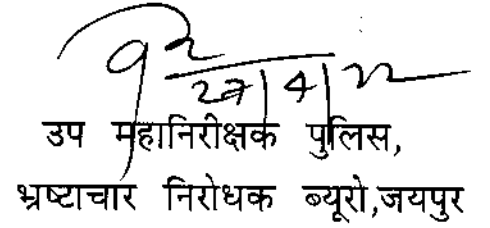 27/4/22
उप महानिरीक्षक पुलिस,
भ्रष्टाचार निरोधक ब्यूरो,जयपुर